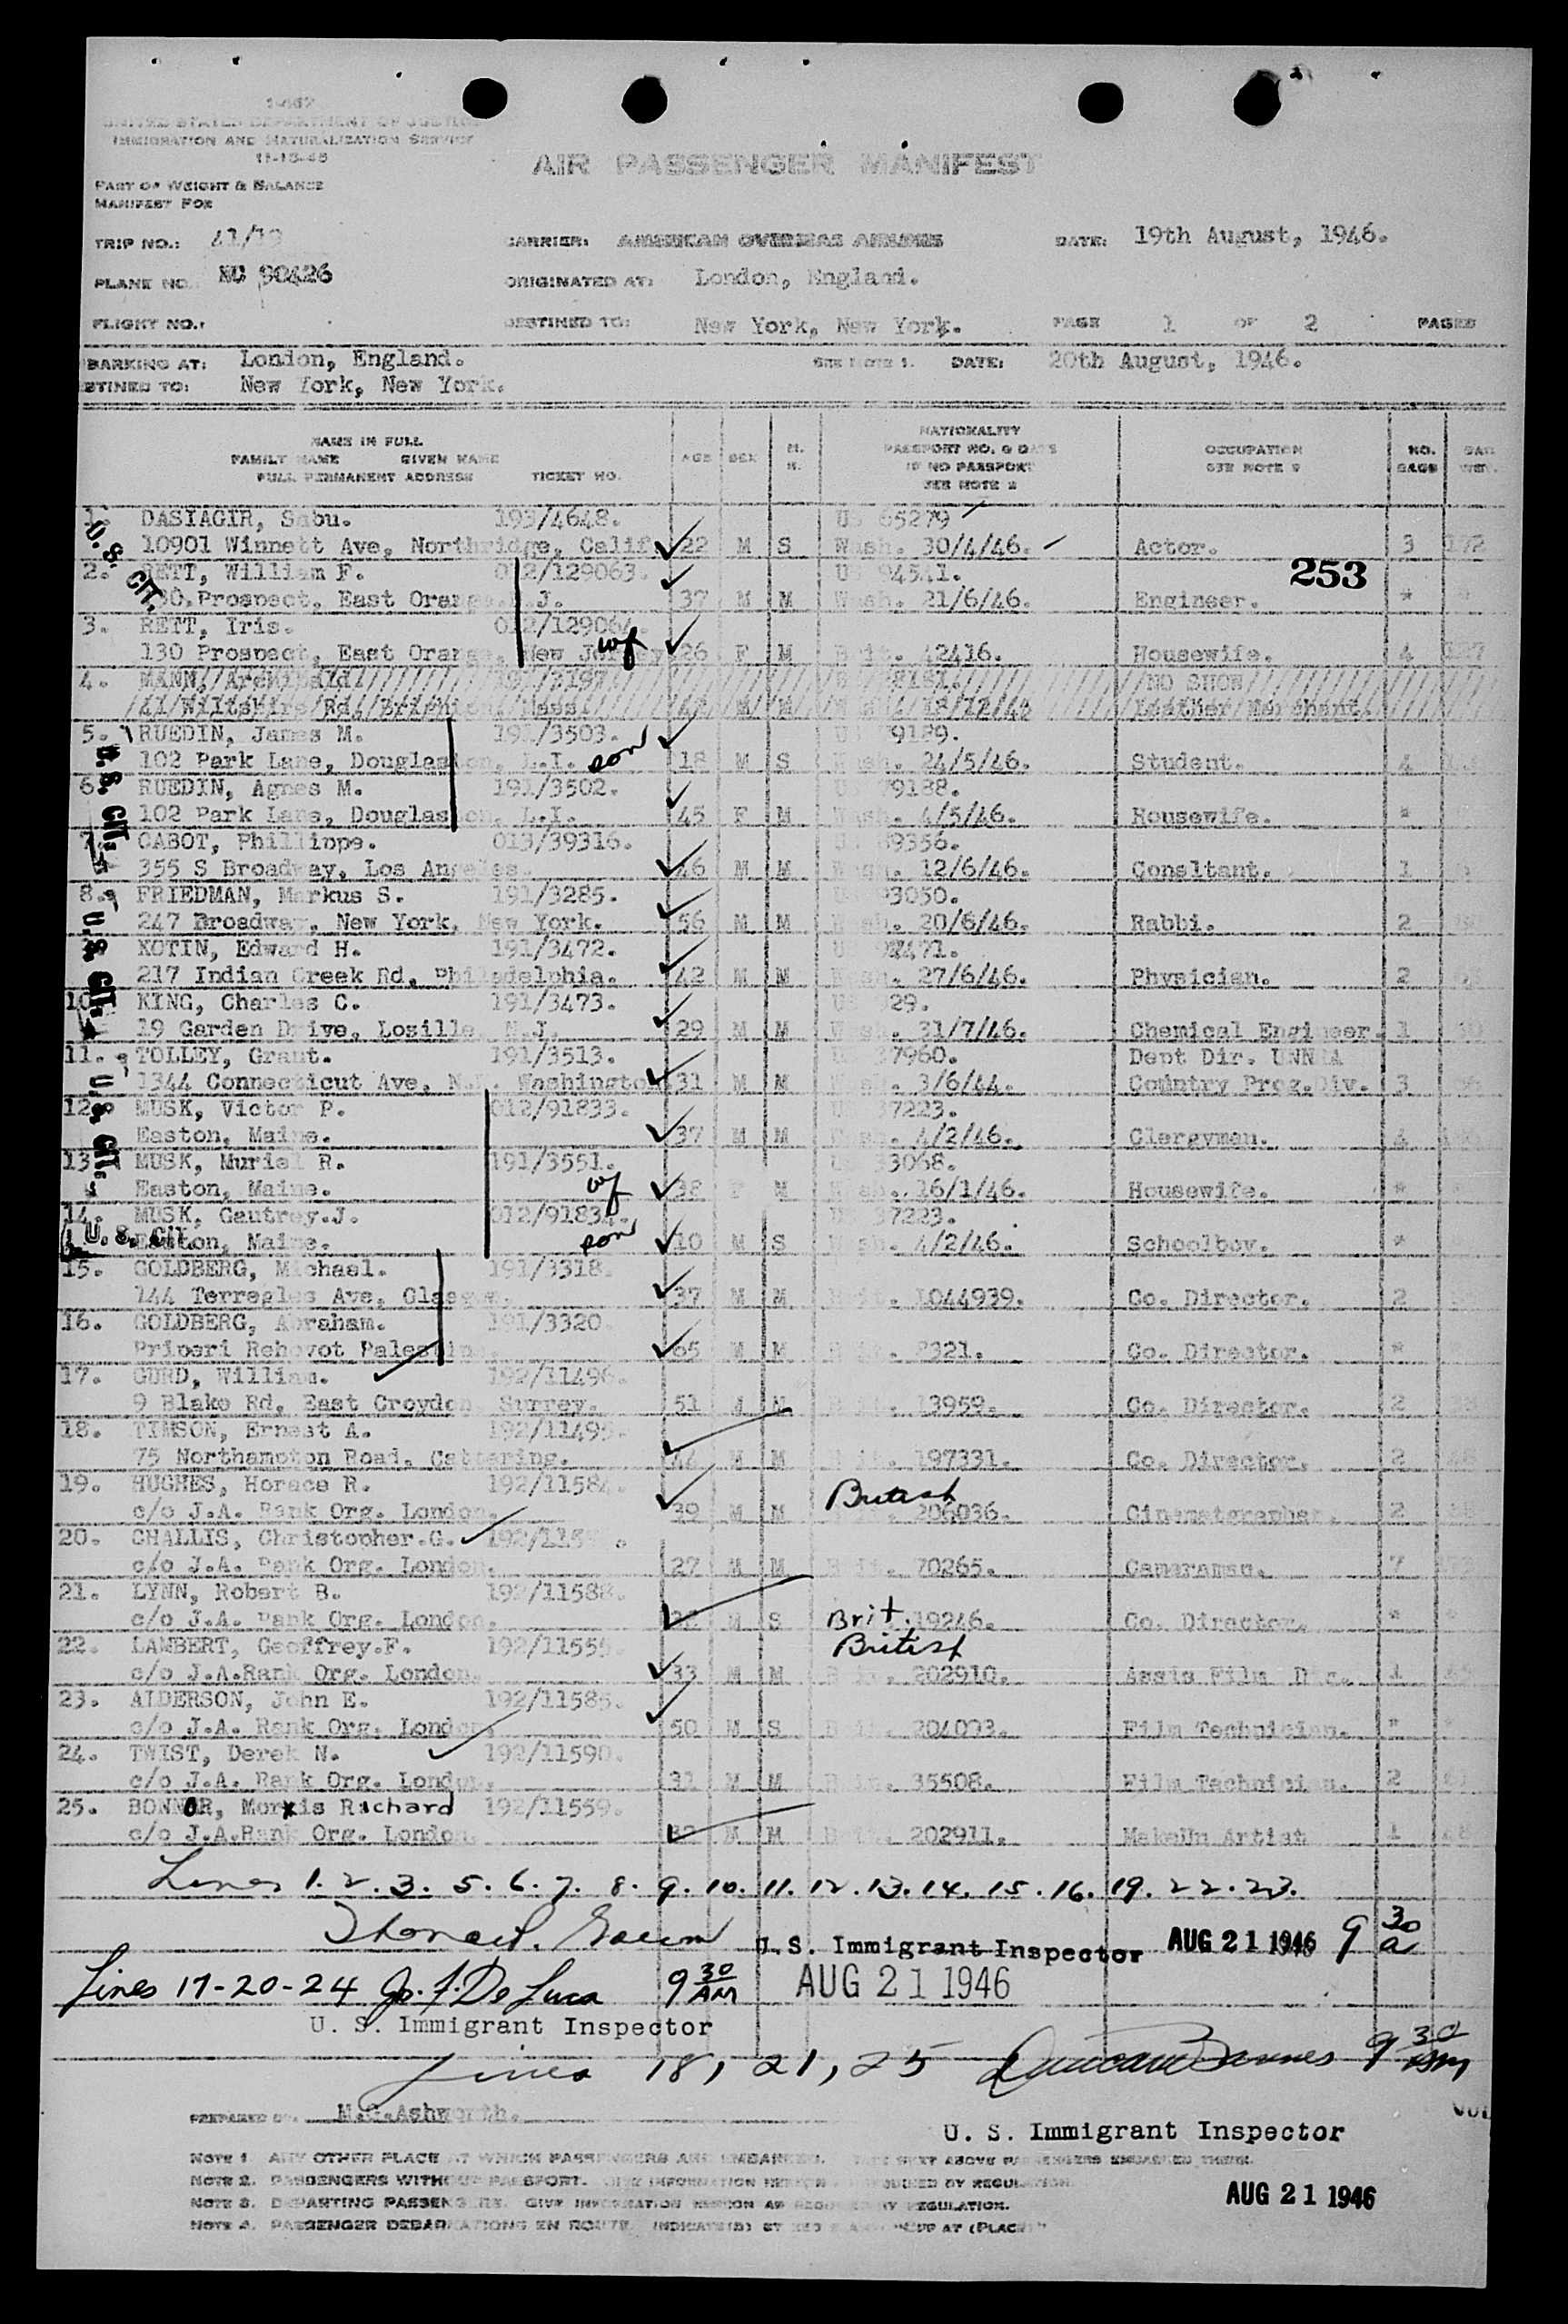 I-467
UNITED STATES DEPARTMENT OF JUSTICE
IMMIGRATION AND NATURALIZATION SERVICE
11-15-45
AIR PASSENGER MANIFEST
PART OF WEIGHT & BALANCE
MANIFEST FOR
TRIP NO.: 41/19 CARRIER: AMERICAN OVERSEAS AIRLINES DATE: 19th August, 1946.
PLANE NO. NC 90426 ORIGINATED AT: London, England.
FLIGHT NO.: DESTINED TO: New York, New York. PAGE 1 OF 2 PAGES
BARKING AT: London, England. SEE NOTE 1. DATE: 20th August, 1946.
STINED TO: New York, New York.
NAME IN FULL
FAMILY NAME GIVEN NAME
FULL PERMANENT ADDRESS TICKET NO. AGE SEX M. NATIONALITY PASSPORT NO. & DATE IF NO PASSPORT SEE NOTE 2 OCCUPATION SEE NOTE 9 NO. BAGS
1. DASTAGIR, Sabu. 193/4648. US 65279
10901 Winnett Ave, Northridge, Calif. 22 M S Wash. 30/4/46. Actor. 3 172
U.S. CIT.
2. RETT, William F. 012/129063. US 94541. 253
130 Prospect, East Orange N.J. 37 M M Wash. 21/6/46. Engineer. "
3. RETT, Iris. 012/129064.
130 Prospect, East Orange, New Jersey wf 26 F M Brit. 42416. Housewife. 4 127
4. MANN, Archibald NO SHOW
41 Wiltshire Rd, Brighton, Mass. 42 M M 18/12/42 Leather Merchant.
5. RUEDIN, James M. 191/3503. 9189.
102 Park Lane, Douglaston, L.I. son 18 M S Wash. 24/5/46. Student. 4
U.S. CIT.
6. RUEDIN, Agnes M. 191/3502. 79188.
102 Park Lane, Douglaston, L.I. 45 F M Wash. 4/5/46. Housewife. "
7. CABOT, Phillippe. 013/39316. 89556.
355 S Broadway, Los Angeles. 46 M M Wash. 12/6/46. Consltant. 1
8. FRIEDMAN, Markus S. 191/3285. 93050.
247 Broadway, New York, New York. 56 M M Wash. 20/6/46. Rabbi. 2
U.S. CIT.
KOTIN, Edward H. 191/3472.
217 Indian Creek Rd, Philadelphia. 42 M M Wash. 27/6/46. Physician. 2
10. KING, Charles C. 191/3473. 29.
19 Garden Drive, Losille, N.J. 29 M M Wash. 31/7/46. Chemical Engineer. 1
11. TOLLEY, Grant. 191/3513. 37960. Dept Dir. UNNRA
1344 Connecticut Ave, N.W. Washington 31 M M Wash. 3/6/44. Country Prog.Div. 3
U.S. CIT.
12. MUSK, Victor P. 012/91833. 37223.
Easton, Maine. 37 M M Wash. 4/2/46. Clergyman. 4
13. MUSK, Muriel R. 191/3551. 33068.
Easton, Maine. wf 38 F M Wash. 16/1/46. Housewife. "
14. MUSK, Gautrey.J. 012/91834. 37223.
U.S. CIT. Easton, Maine. son 10 M S Wash. 4/2/46. Schoolboy. "
15. GOLDBERG, Michael. 191/3318.
144 Terregles Ave, Glasgow. 37 M M Brit. 1044939. Co. Director. 2
16. GOLDBERG, Abraham. 191/3320.
Priperi Rehovot Palestine. 65 M M 8321. Co. Director. "
17. GURD, William. 192/11496.
9 Blake Rd, East Croydon, Surrey. 51 M M Brit. 13959. Co. Director. 2
18. TIMSON, Ernest A. 192/11495.
75 Northampton Road, Cattaring. M M Brit. 197331. Co. Director. 2
19. HUGHES, Horace R. 192/11584. British
c/o J.A. Rank Org. London. 39 M M 206036. Cinematographer. 2
20. CHALLIS, Christopher.G. 192/115
c/o J.A. Rank Org. London. 27 M M Brit. 70265. Cameraman. 7
21. LYNN, Robert B. 192/11588.
c/o J.A. Rank Org. London. M S Brit. 19246. Co. Director. "
22. LAMBERT, Geoffrey.F. 192/11555. British
c/o J.A.Rank Org. London. 33 M M Brit. 202910. Assis Film Dir. 1
23. ALDERSON, John E. 192/11585.
c/o J.A. Rank Org. London. 50 M S Brit. 204093. Film Technician. "
24. TWIST, Derek N. 192/11590.
c/o J.A. Rank Org. London. 31 M M Brit. 35508. Film Technician. 2
25. BONNOR, Morris Richard 192/11559.
c/o J.A.Rank Org. London. M M Brit. 202911. MakeUp Artist 1
Lines 1. 2. 3. 5. 6. 7. 8. 9. 10. 11. 12. 13. 14. 15. 16. 19. 22. 23.
U.S. Immigrant Inspector AUG 21 1946 9 30 a
Lines 17-20-24 Jo. J. De Luca 9 30 AM AUG 21 1946
U. S. Immigrant Inspector
Lines 18, 21, 25 9 30 am
PREPARED BY. M.C.Ashworth.
U. S. Immigrant Inspector
NOTE 1. ANY OTHER PLACE AT WHICH PASSENGERS ARE EMBARKED. LIST NEXT ABOVE PASSENGERS EMBARKED THERE.
NOTE 2. PASSENGERS WITHOUT PASSPORT. GIVE INFORMATION HEREON AS REQUIRED BY REGULATION.
NOTE 3. DEPARTING PASSENGERS. GIVE INFORMATION HEREON AS REQUIRED BY REGULATION.
NOTE 4. PASSENGER DEBARKATIONS EN ROUTE, INDICATE(D) BY "OFF AT (PLACE)"
AUG 21 1946